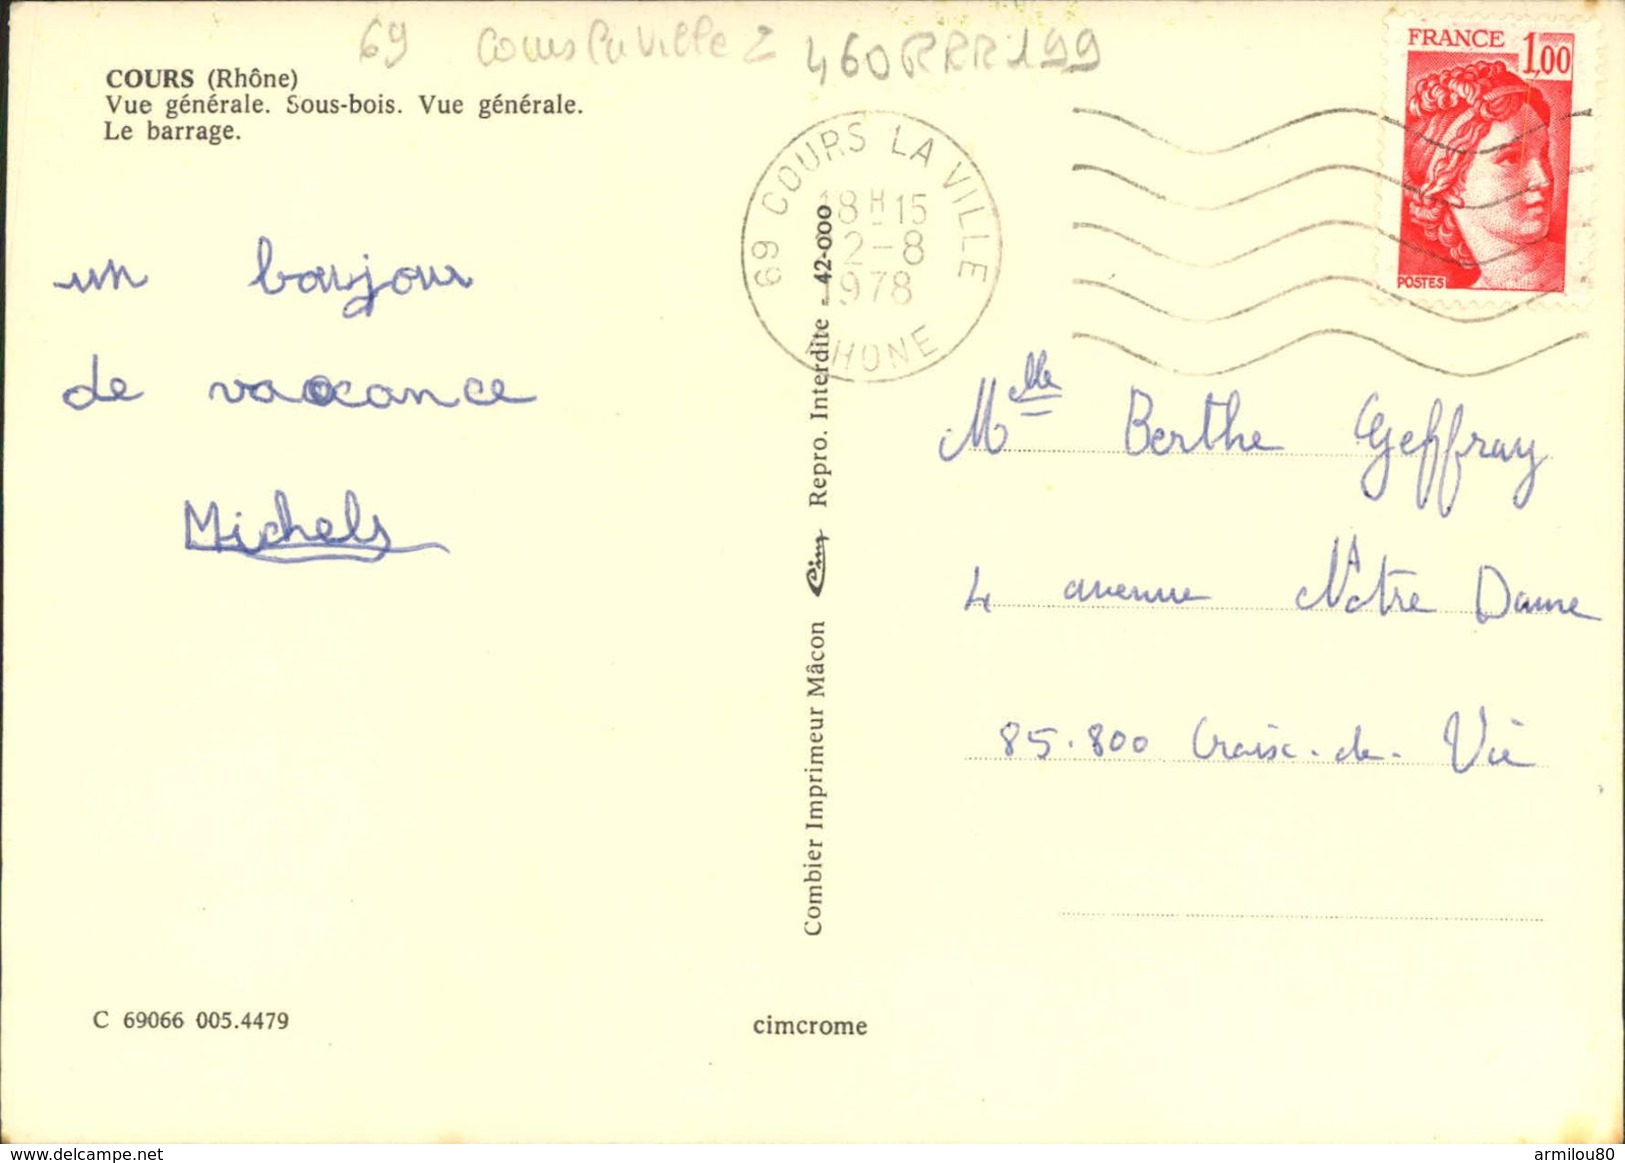 69 Cours la Ville 2 460RRR199
COURS (Rhône)
Vue générale. Sous-bois. Vue générale.
Le barrage.
un bonjour
de vacance
Michels
69 COURS LA VILLE
18H15
2-8
1978
RHONE
FRANCE 1,00
POSTES
Combier Imprimeur Mâcon Cim Repro. Interdite - 42-000
Mlle Berthe Geffray
4 avenue Nôtre Dame
85.800 Croix-de-Vie
C 69066 005.4479
cimcrome
www.delcampe.net
armilou80